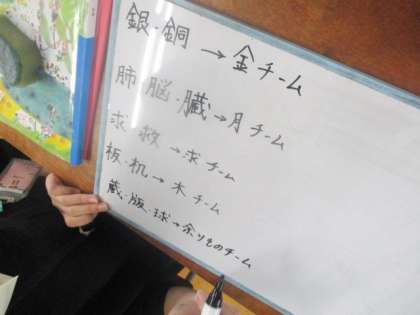 銀・銅→金チーム
肺・脳・臓→月チーム
求・救→求チーム
板・机→木チーム
蔵・版・球→余りものチーム